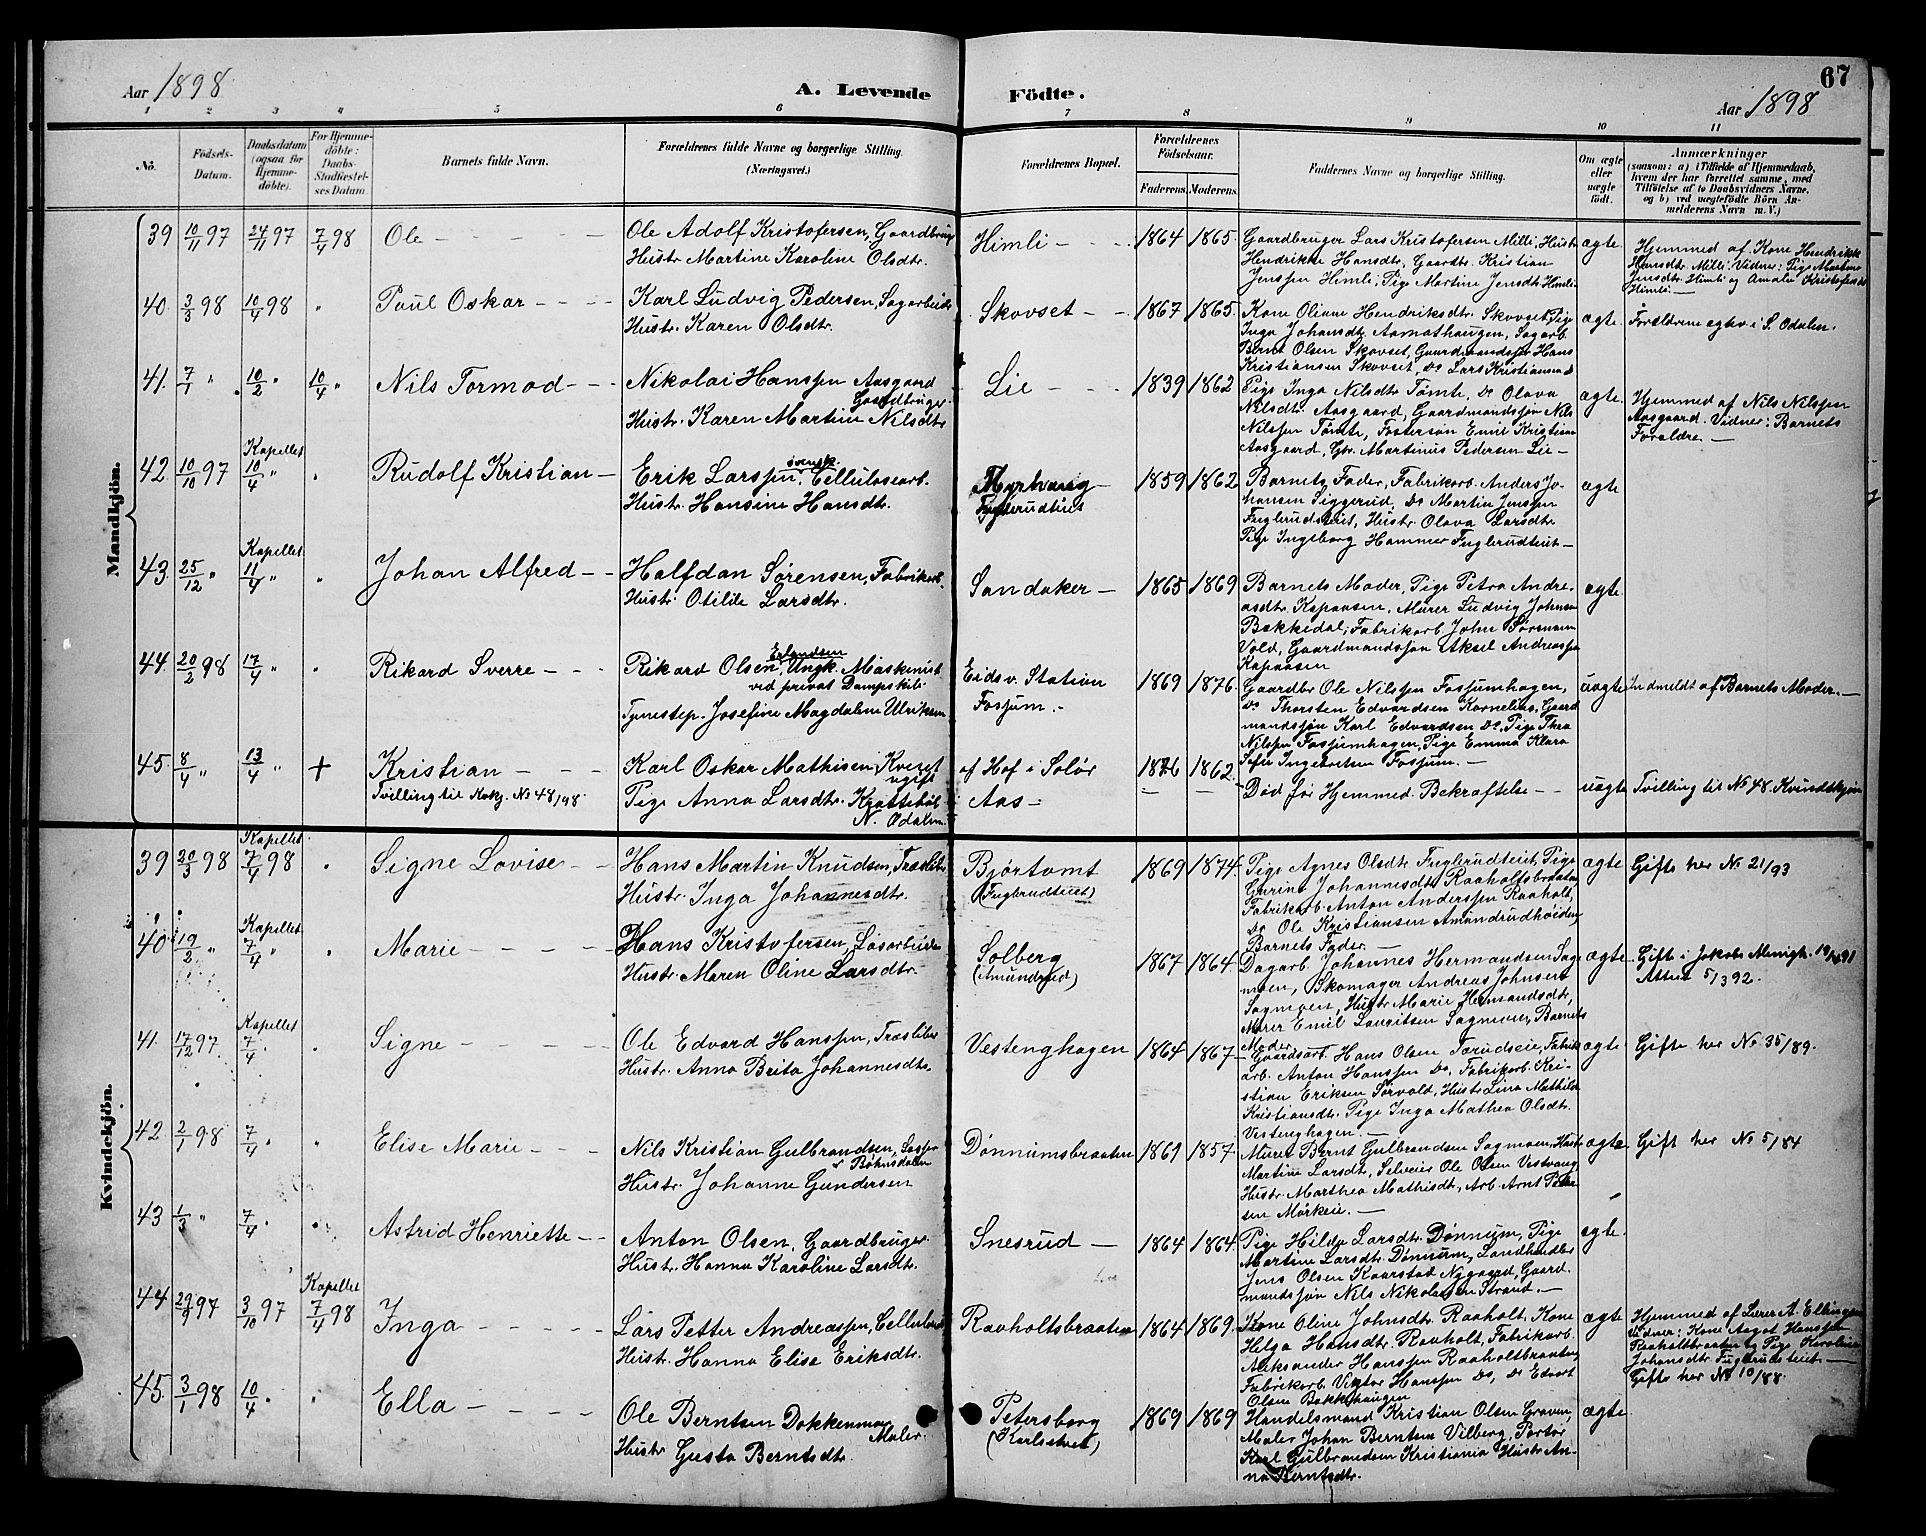 Aar 1898
A. Levende Födte.
67
Aar 1898
1 2 3 4 5 6 7 8 9 10 11
No.
Födsels-Datum.
Daabsdatum (ogsaa for Hjemme-döbte).
For Hjemme-döbte: Daabs-Stadfæstel-ses Datum.
Barnets fulde Navn.
Forældrenes fulde Navne og borgerlige Stilling. (Næringsvei.)
Forældrenes Bopæl.
Forældrenes Födselsaar.
Faderens. Moderens.
Faddernes Navne og borgerlige Stilling.
Om ægte eller uægte födt.
Anmærkninger
(saasom: a) i Tilfælde af Hjemmedaab, hvem der har forrettet samme, med Tilföielse af to Daabsvidners Navne, og b) ved uægtefödte Börn An-melderens Navn m. V.)
Mandkjön.
39 10/11 97 24/11 97 7/4 98 Ole
Ole Adolf Kristofersen, Gaardbruger
Hustr. Martine Karoline Olsdtr.
Himli 1864 1865
Gaardbruger Lars Kristofersen Milli, Hustr
Hendrikke Hansdtr, Gaardbr. Kristian
Jenssen Himli, Pige Martine Jensdtr Himli
ægte
Hjemmed af Kone Hendrikke
Hansdtr. Milli. Vidner: Pige Martine
Jensdtr Himli og Amalie Kristofersdt
Himli.
40. 3/3 98 10/4 98 " Paul Oskar
Karl Ludvig Pedersen, Sagarbeider
Hustr. Karen Olsdtr.
Skovset 1867 1865
Kone Oliane Hendriksdtr. Skovset, Pige
Inga Johansdtr Aamothaugen, Sagarb.
Bernt Olsen Skovset, Gaardmandssøn Hans
Kristiansen Skovset, Do Lars Kristiansen Do
ægte
Forældrene egtev. i S. Odalen.
41. 7/1 " 10/2 " 10/4 " Nils Tormod
Nikolai Hanssen Aasgaard
Gaardbruger
Hustr. Karen Martine Nilsdtr
Lie 1839 1862
Pige Inga Nilsdtr Tømte, Do Olava
Nilsdtr. Aasgaard, Gaardmandssøn Nils
Nilssen Tømte, Fostersøn Emil Kristian
Aasgaard, Gbr. Martinus Pedersen Lie
ægte
Hjemmed af Nils Nilssen
Aasgaard. Vidner: Barnets
Forældre.
42. 10/10 97 Kapellet 10/4 " " Rudolf Kristian
Erik Larssen, svensk Cellulosearb.
Hustr. Hansine Hansdtr.
Myrhvarig
Fuglerudteiet
1859 1862
Barnets Fader, Fabrikarb. Anders Jo-
hansen Siggerud, Do Martin Jenssen
Fuglerudsteiet, Hustr. Olava Larsdtr.
Pige Ingeborg Hammer Fuglerudteiet
ægte
43. 25/12 " Kapellet 11/4 " " Johan Alfred
Halfdan Sørensen, Fabrikarb.
Hustr. Otilde Larsdtr.
Sandaker 1865 1869
Barnets Moder, Pige Petra Andre-
asdtr. Kapaasen, Murer Ludvig Johnsen
Bekkedal, Fabrikarb. John Sørensen
Vold, Gaardmandssøn Aksel Andreassen
Kapaasen
ægte
44. 20/2 98 17/4 " " Rikard Sverre
Rikard Olsen, Erlandsen Ungk. Maskinist
ved privat Dampskib
Tjenestep. Josefine Magdalene Ulriksen
Eidsv. Station
Fossum.
1869 1876
Gaardbr Ole Nilssen Fossumhagen,
Do Thorsten Edvardsen Kornelius, Gaard
mandssøn Karl Edvardsen Do, Pige Thea
Nilssen Fossumhagen, Pige Emma Klara
Sofie Ingebretsen Fossum.
uægte
Indmeldt af Barnets Moder.
45. 8/4 " 13/4 " + Kristian
Tvilling til Kvkj. No 48/98.
Karl Oskar Mathisen Kveset
ugift
Pige Anna Larsdtr. Krattebøl
N. Odalen.
af Hof i Solør
Aas
1876 1862
Død før Hjemmed. Bekræftelse
uægte
Tvilling til No 48. Kvindekjøn
Kvindekjön.
39 20/3 98 Kapellet 7/4 98 " Signe Lovise
Hans Martin Knudsen, Træsliber
Hustr. Inga Johannesdtr.
Bjørtomt
(Fuglerudteiet)
1869 1874
Pige Agnes Olsdtr. Fuglerudteiet, Pige
Gurine Johannesdtr. Raaholtsbraaten,
Fabrikarb. Anton Anderssen Raaholt,
Do Ole Kristiansen Amundrudhøiden
Barnets Fader.
ægte
Gifte her No 21/93
40. 19/2 " Kapellet 7/4 " " Marie
Hans Kristofersen, Løsarbeider
Hustr. Maren Oline Larsdtr.
Solberg
(Amundrud)
1867 1864
Dagarb. Johannes Hermandsen Sag
moen, Skomager Andreas Johnsen
Sagmoen, Hustr Marie Hermandsdtr,
Murer Emil Lauritsen Sagmoen, Barnets
Moder.
ægte
Gifte i Jakobs Menigh.
Attest 5/3 92.
41. 17/12 97. Kapellet 7/4 " " Signe
Ole Edvard Hanssen, Træsliber
Hustr. Anna Brita Johannesdtr.
Vestenghagen 1864 1867
Gaardsarb. Hans Olsen Tærudseie, Fabrik
arb. Anton Hanssen Do, Fabrikarb. Kri-
stian Eriksen Sørvold, Hustr Lina Mathilde
Kristiansdtr. Pige Inga Mathea Olsdtr.
Vestenghagen.
ægte
Gifte her No 35/89.
42 2/1 98 7/4 " " Elise Marie
Nils Kristian Gulbrandsen,
Bøhnsdalen
Hustr. Johanne Gundersen
Dønnumsbraaten 1869 1857
Murer Bernt Gulbrandsen Sagmoen, Hustr
Martine Larsdtr, Selveier Ole Olsen Vestvang
Hustr. Marthea Mathisdtr, Arb. Arnt Peter
sen Mørkeie.
ægte
Gift her No 5/84
43 1/3 " 7/4 " " Astrid Henriette
Anton Olsen, Gaardbruger.
Hustr. Hanna Karoline Larsdtr.
Snesrud 1864 1864
Pige Hilda Larsdtr. Dønnum, Pige
Martine Larsdtr. Dønnum, Landhandler
Jens Olsen Kaarstad Nygaard, Gaard
mandssøn Nils Nikolaisen Strand.
ægte.
44 29/9 97 3/10 97 Kapellet 7/4 98 Inga
Lars Petter Andreassen, Cellulosearb
Hustr. Hanna Elise Eriksdtr.
Raaholtsbraaten 1864 1869
Kone Oline Johnsdtr. Raaholt, Kone
Helga Hansdtr. Raaholt, Fabrikarb.
Aleksander Hanssen Raaholtbraaten,
Fabrikarb. Viktor Hanssen Do, Do Edvart
Olsen Bakkehaugen
ægte
Hjemmed af Lærer A. Ellingsen
Vidner: Kone Aagot Hanssen
Raaholtbraaten og Pige Karoline
Johansdtr. Fuglerudsteiet.
Gifte her No 10/88.
45. 3/1 98 10/4 " " Ella
Ole Berntsen Dokkenmoe
Maler.
Hustr Gusta Berntsdtr.
Petersborg
(Karlstvet)
1869 1869
Handelsmand Kristian Olsen Graven,
Maler Johan Berntsen Vilberg, Portør
Karl Gulbrandsen Kristiania Hustr An-
na Berntsdtr.
ægte